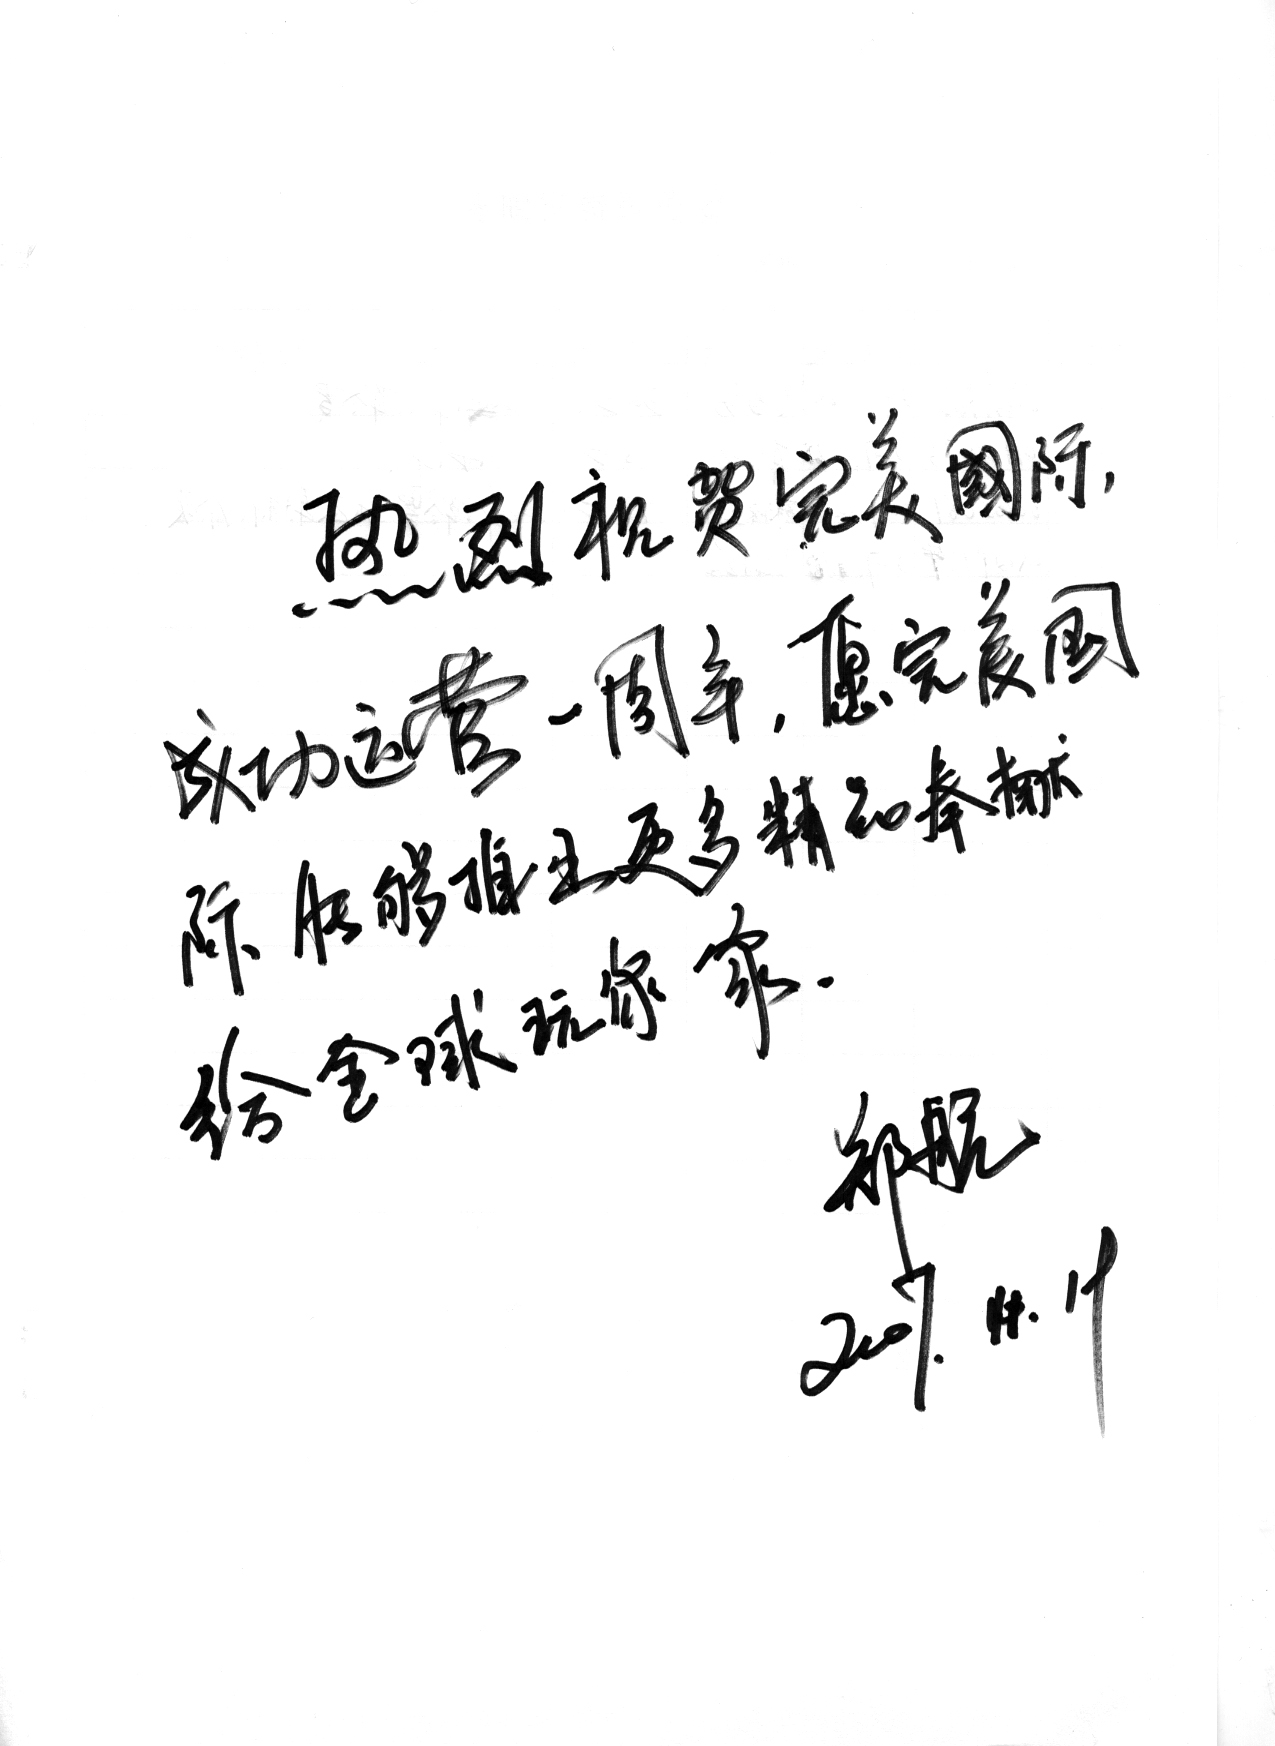 热烈祝贺完美國际,
成功运营一周年,愿完美国
际能够推出更多精品奉献
给全球玩家家.
郑航
2007.11.19